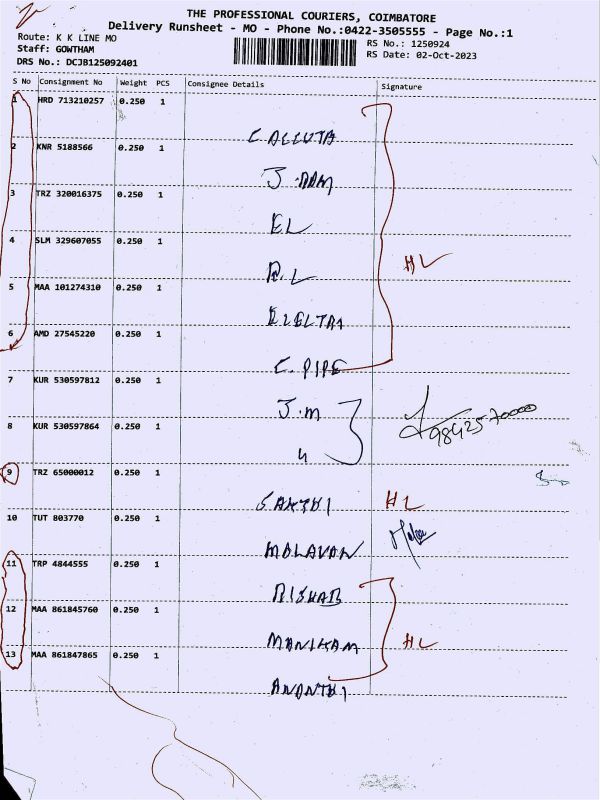 THE PROFESSIONAL COURIERS, COIMBATORE
Delivery Runsheet - MO - Phone No.:0422-3505555 - Page No.:1
Route: K K LINE MO
RS No.: 1250924
Staff: GOWTHAM
RS Date: 02-Oct-2023
DRS No.: DCJB125092401
S No Consignment No Weight PCS Consignee Details Signature
1 HRD 713210257 0.250 1
CALCUTA
2 KNR 5188566 0.250 1
3 TRZ 320016375 0.250 1
EL
4 SLM 329607055 0.250 1
HL
5 MAA 101274310 0.250 1
6 AMD 27545220 0.250 1
C. PIPE
7 KUR 530597812 0.250 1
J.M
8 KUR 530597864 0.250 1
9842570000
9 TRZ 65000012 0.250 1
SAKTHI HL
10 TUT 803770 0.250 1
MALAVAN
11 TRP 4844555 0.250 1
RISHAB
12 MAA 861845760 0.250 1
MANIKAM HL
13 MAA 861847865 0.250 1
ANANTHI